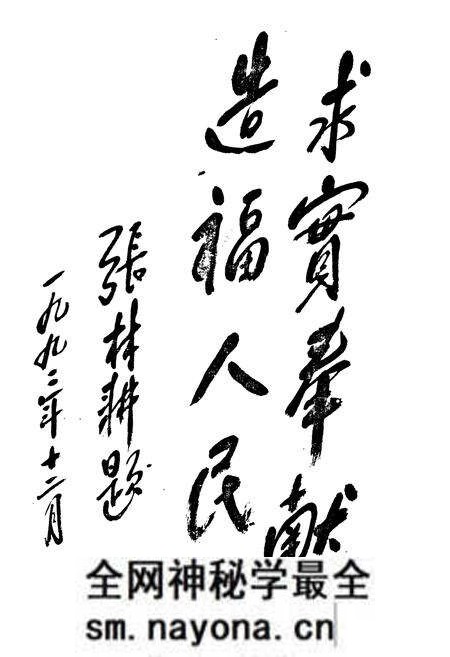 求實奉献
造福人民
張林耕题
一九九二年十二月
全网神秘学最全
sm.nayona.cn